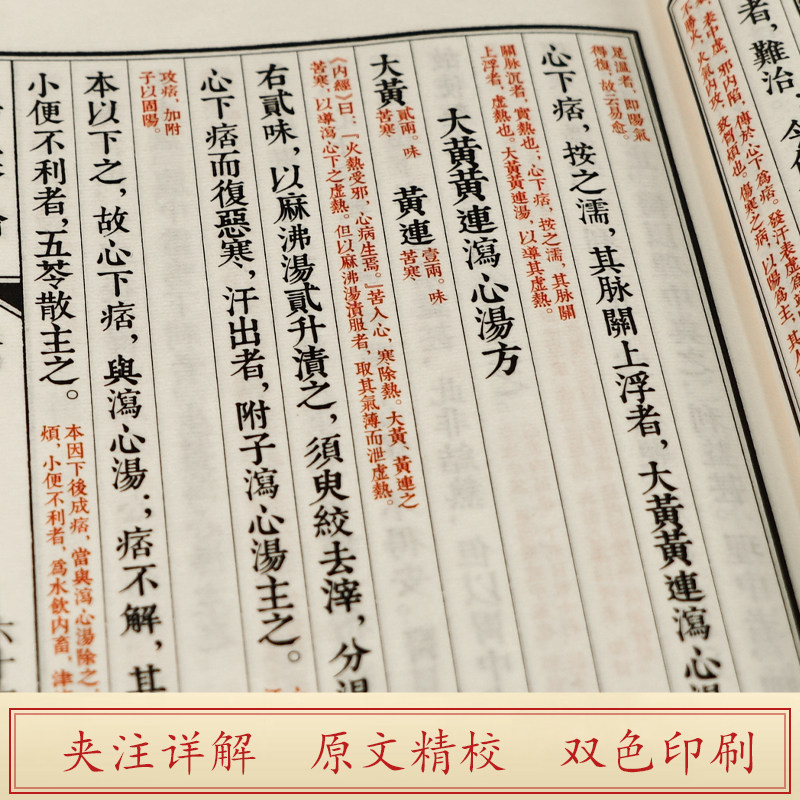 者，難治，
足温者，即陽氣
得復，故云易愈。
心下痞，按之濡，其脉關上浮者，大黃黃連瀉心湯
關脉沉者，實熱也；心下痞，按之濡，其脉關
上浮者，虛熱也。大黃黃連湯，以導其虛熱。
大黃黃連瀉心湯方
大黃 貳兩。味
苦寒
黃連 壹兩。味
苦寒
《內經》曰：「火熱受邪，心病生焉。」苦入心，寒除熱。大黃、黃連之
苦寒，以導瀉心下之虛熱。但以麻沸湯漬服者，取其氣薄而泄虛熱。
右貳味，以麻沸湯貳升漬之，須臾絞去滓，分温
心下痞而復惡寒、汗出者，附子瀉心湯主之。
攻痞，加附
子以固陽。
本以下之，故心下痞，與瀉心湯；痞不解，其
小便不利者，五苓散主之。
本因下後成痞，當與瀉心湯除之，
煩，小便不利者，爲水飲内畜，津
夹注详解 原文精校 双色印刷